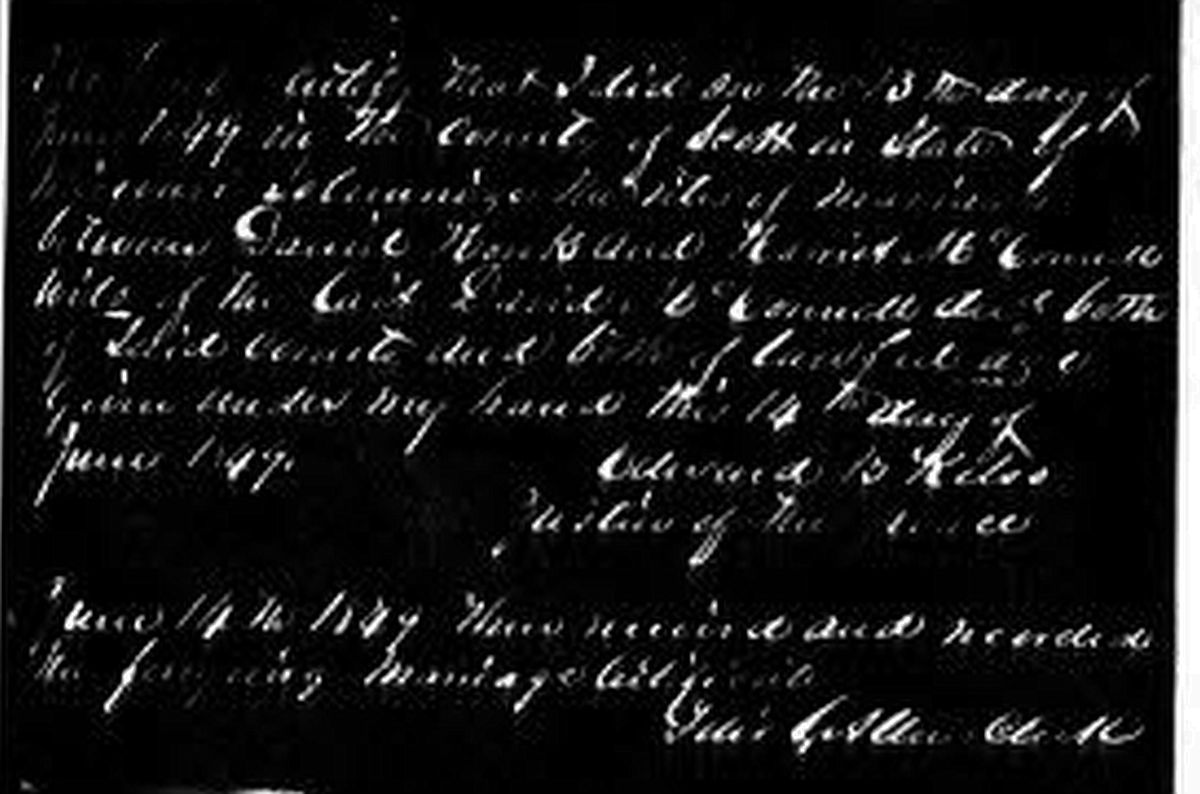 certify that I did on the 13th day of
June 1849 in the County of Scott in State of
Missouri solemnize the rites of marriage
between Daniel and Harriet McConnell
of the Said David McConnell decd both
of said County and both of lawful age
Given under my hand this 14th day of
June 1849. Edward B Kelso
Justice of the Peace
June 14th 1849 Then received and recorded
the foregoing Marriage Certificate
Allen Clerk